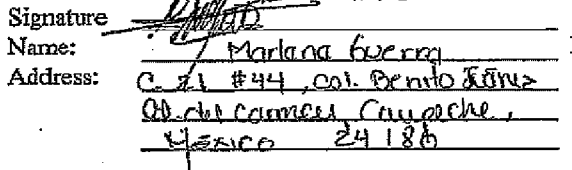 Signature
Name: Mariana Guerra
Address: C. 21 #44, col. Benito Juárez
Cd. del Carmen, Campeche,
México 24180